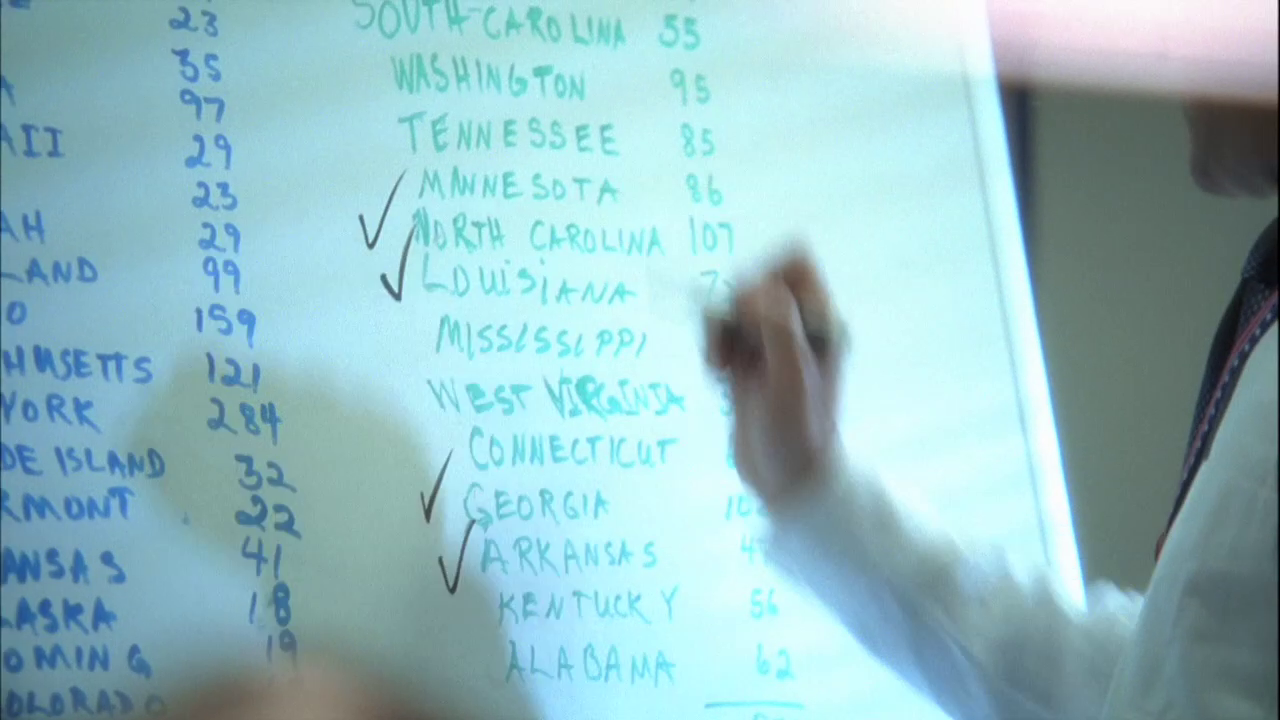 23
35
97
AII 29
23
AH 29
LAND 99
O 159
HUSETTS 121
YORK 284
DE ISLAND 32
RMONT 22
ANSAS 41
LASKA 18
OMING 19
OLORADO
SOUTH CAROLINA 55
WASHINGTON 95
TENNESSEE 85
MINNESOTA 86
NORTH CAROLINA 107
LOUISIANA
MISSISSIPPI
WEST VIRGINIA
CONNECTICUT
GEORGIA
ARKANSAS
KENTUCKY 56
ALABAMA 62